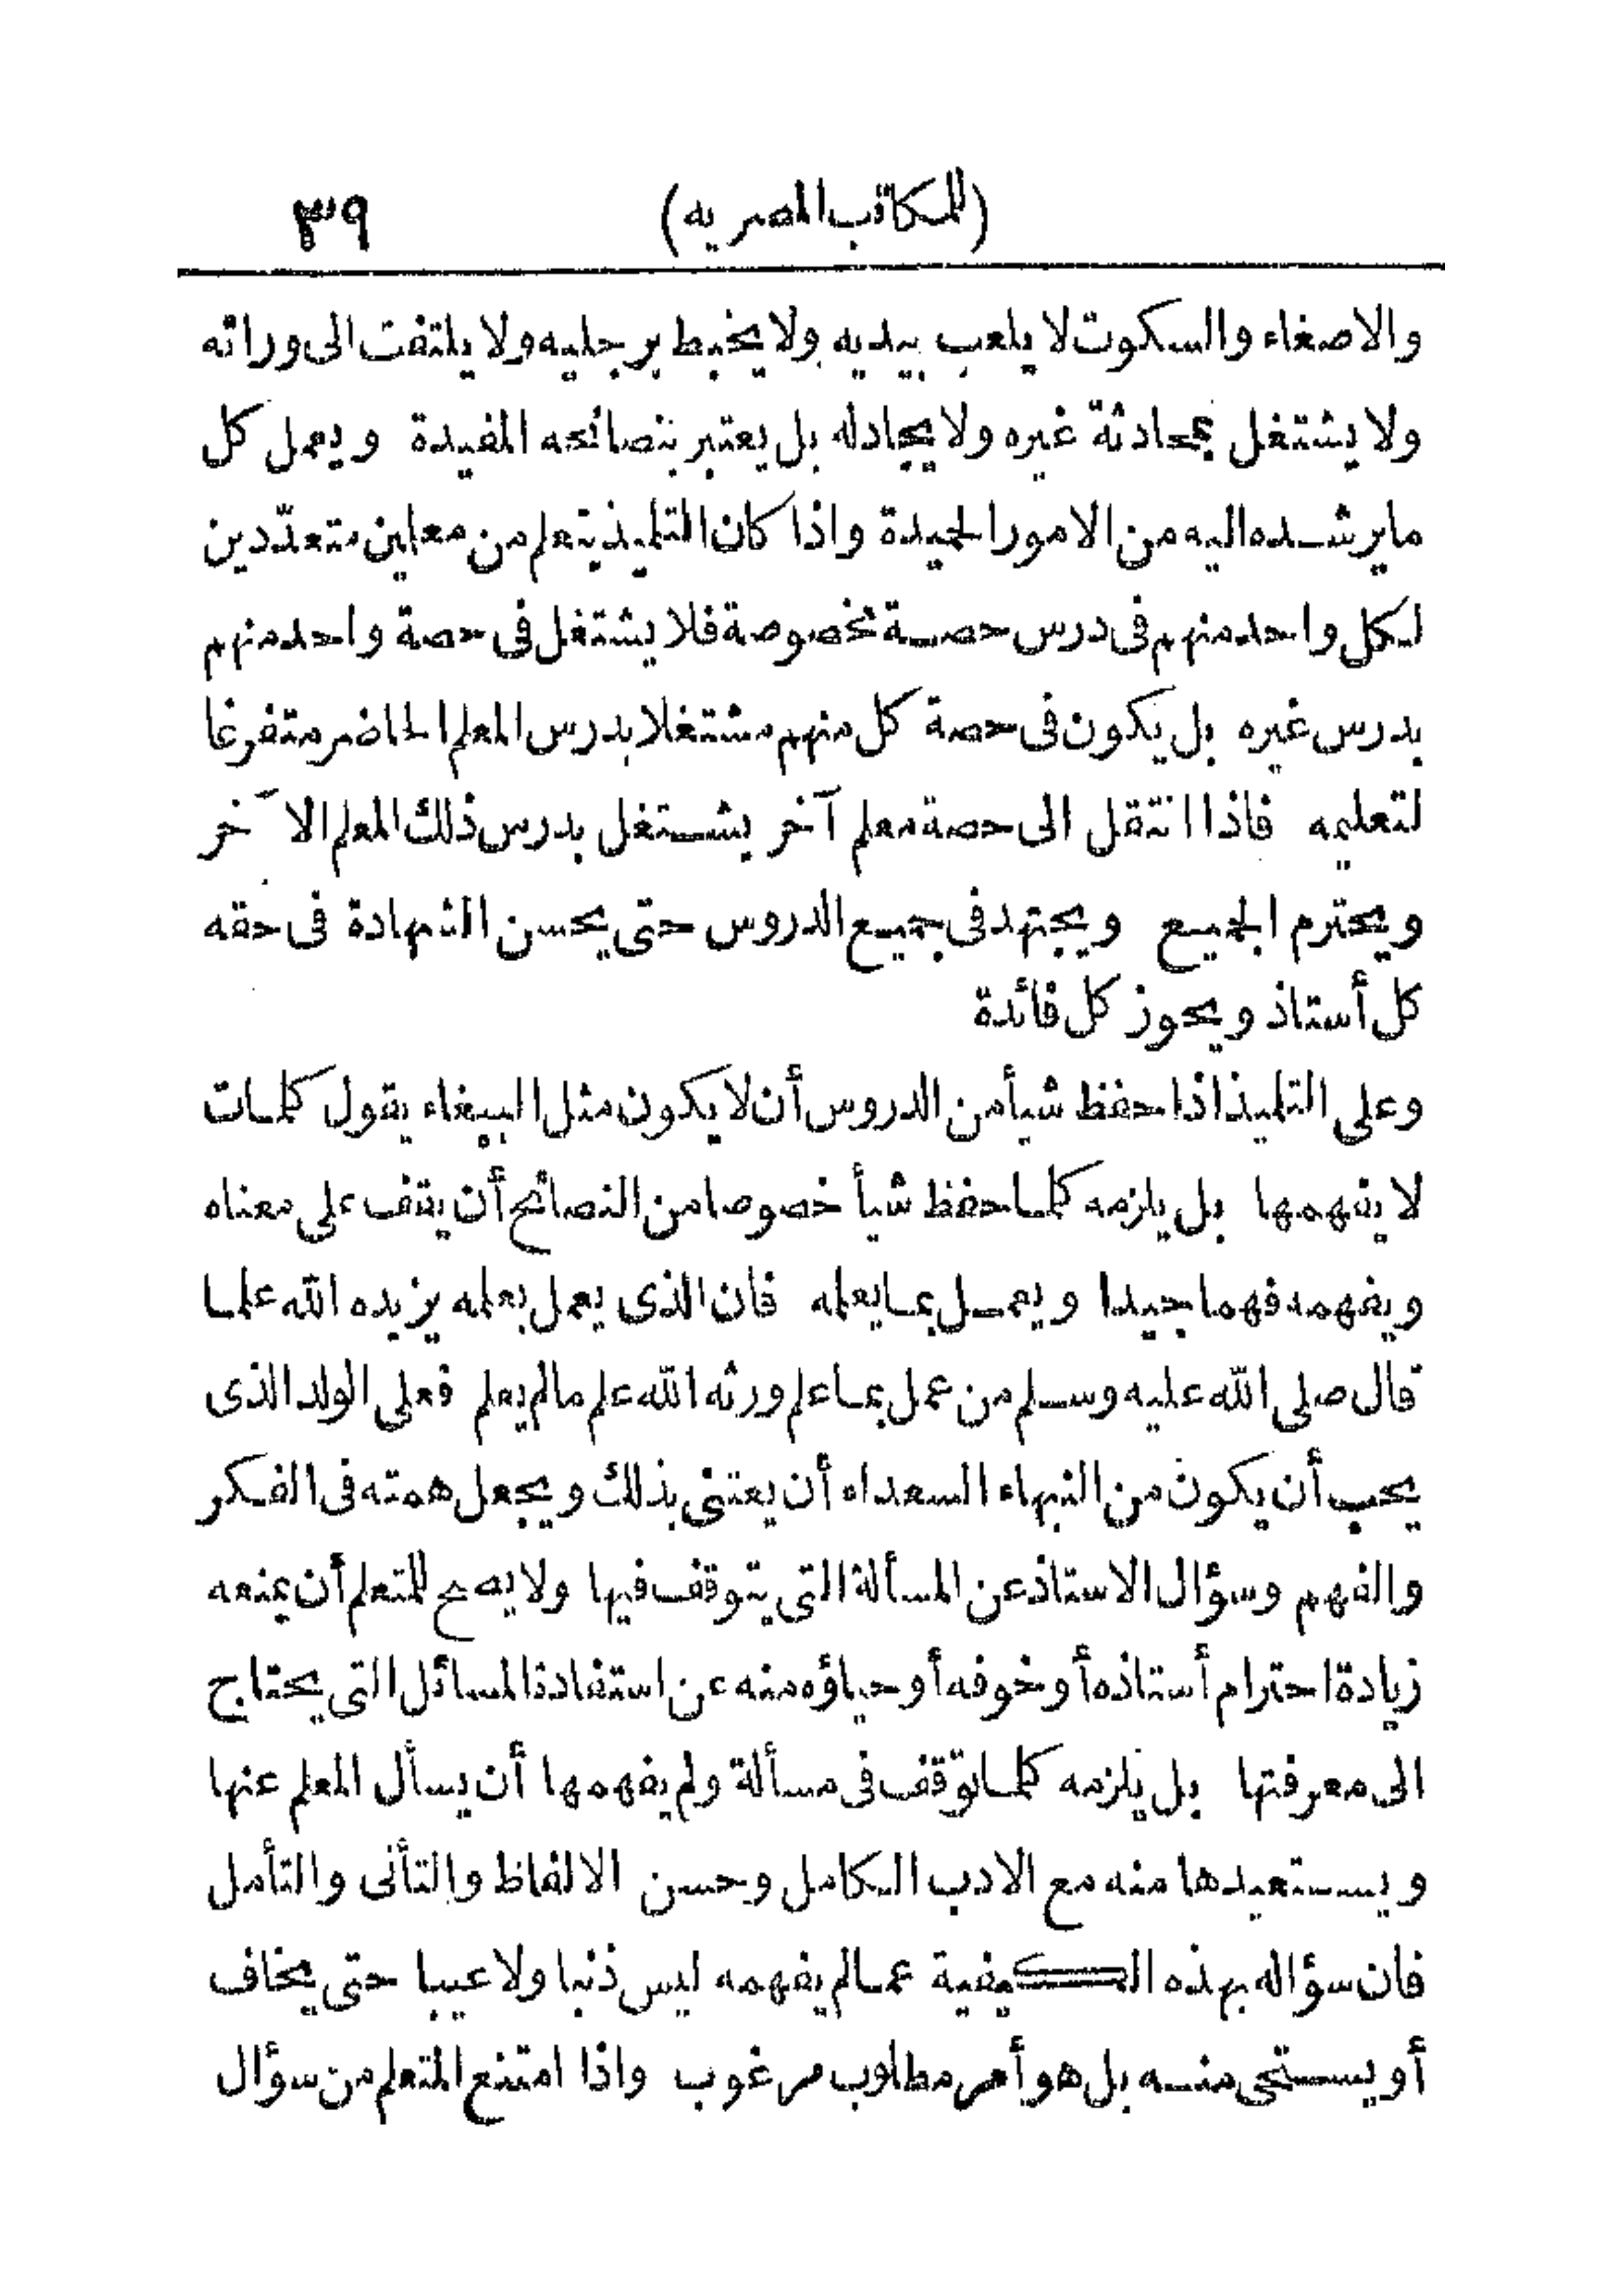 (للمكاتب المصريه) ٣٩
والاصغاء والسكوت لا يلعب بيديه ولا يخبط برجليه ولا يلتفت الى ورائه
ولا يشتغل بمحادثة غيره ولا يجادله بل يعتبر بنصائحه المفيدة ويعمل كل
ما يرشده اليه من الامور الجيدة واذا كان التلميذ يتعلم من معلمين متعدّدين
لكل واحد منهم فى درس حصة مخصوصة فلا يشتغل فى حصة واحد منهم
بدرس غيره بل يكون فى حصة كل منهم مشتغلا بدرس المعلم الحاضر متفرغا
لتعليمه فاذا انتقل الى حصة معلم آخر يشتغل بدرس ذلك المعلم الآخر
ويحترم الجميع ويجتهد فى جميع الدروس حتى يحسن الشهادة فى حقه
كل أستاذ ويحوز كل فائدة
وعلى التلميذ اذا حفظ شيأ من الدروس أن لا يكون مثل الببغاء يقول كلمات
لا يفهمها بل يلزمه كلما حفظ شيأ خصوصا من النصائح أن يقف على معناه
ويفهمه فهما جيدا ويعمل بما يعلمه فان الذى يعمل بعلمه يزيده الله علما
قال صلى الله عليه وسلم من عمل بما علم ورثه الله علم ما لم يعلم فعلى الولد الذى
يحب أن يكون من النبهاء السعداء أن يعتنى بذلك ويجعل همته فى الفكر
والفهم وسؤال الاستاذ عن المسألة التى يتوقف فيها ولا يصح للمتعلم أن يمنعه
زيادة احترام أستاذه أو خوفه أو حياؤه منه عن استفادة المسائل التى يحتاج
الى معرفتها بل يلزمه كلما توقف فى مسألة ولم يفهمها أن يسأل المعلم عنها
ويستعيدها منه مع الادب الكامل وحسن الالفاظ والتأنى والتأمل
فان سؤاله بهذه الكيفية عما لم يفهمه ليس ذنبا ولا عيبا حتى يخاف
أو يستحى منه بل هو أمر مطلوب مرغوب واذا امتنع المتعلم من سؤال